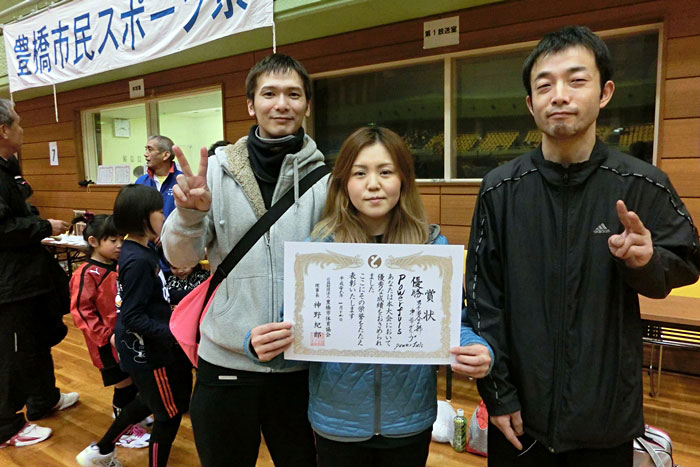 豊橋市民スポーツ祭
第1放送室
7
adidas
賞状
優勝
Powerfuls
あなたは本大会において
優秀な成績をおさめられ
ました
ここにその栄誉をたたえ
表彰いたします
豊橋市体育協会
理事長 神野紀郎